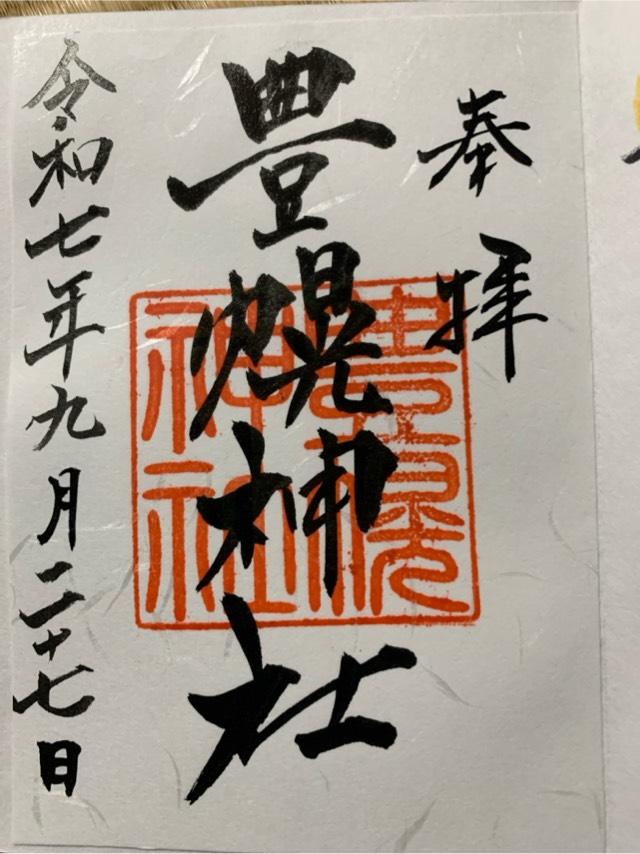 奉拝
豊幌神社
豊幌神社
令和七年九月二十七日